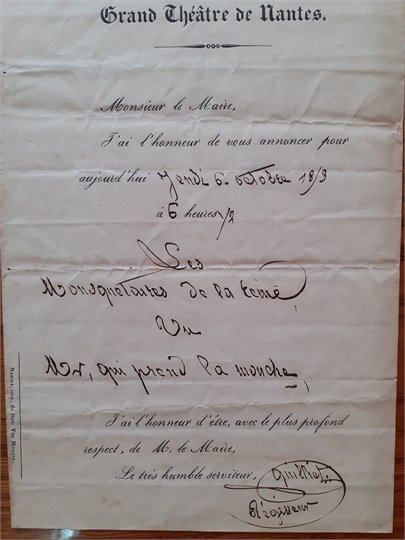 Grand Théâtre de Nantes.
Monsieur le Maire,
J'ai l'honneur de vous annoncer pour
aujourd'hui Jeudi 6 octobre 1853
à 6 heures 1/2
Les
Mousquetaires de la Reine,
Un
Mr, qui prend la mouche,
J'ai l'honneur d'être, avec le plus profond
respect, de M. le Maire,
Le très humble serviteur,
Régisseur
Nantes, imp. de